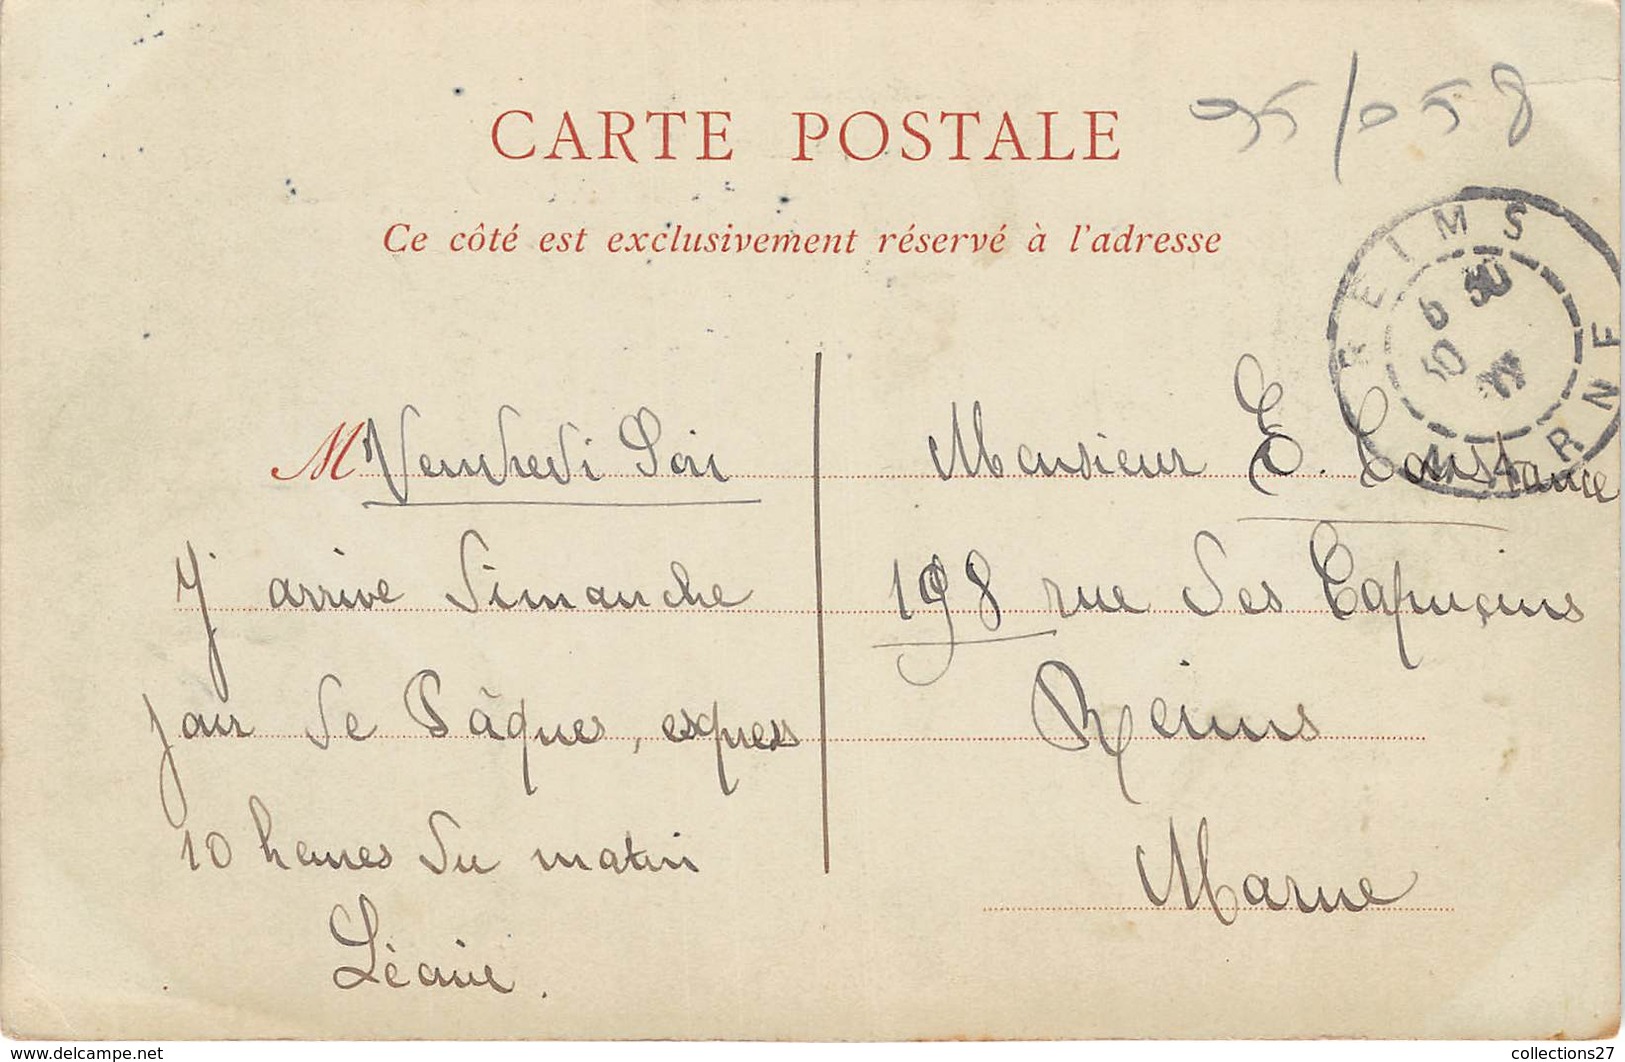 95/058
CARTE POSTALE
Ce côté est exclusivement réservé à l'adresse
REIMS
MARNE
M Vendredi Soir
J' arrive dimanche
jour de Pâques, express
10 heures du matin
Monsieur E. Constance
198 rue des Capucins
Reims
Marne
www.delcampe.net
collections27